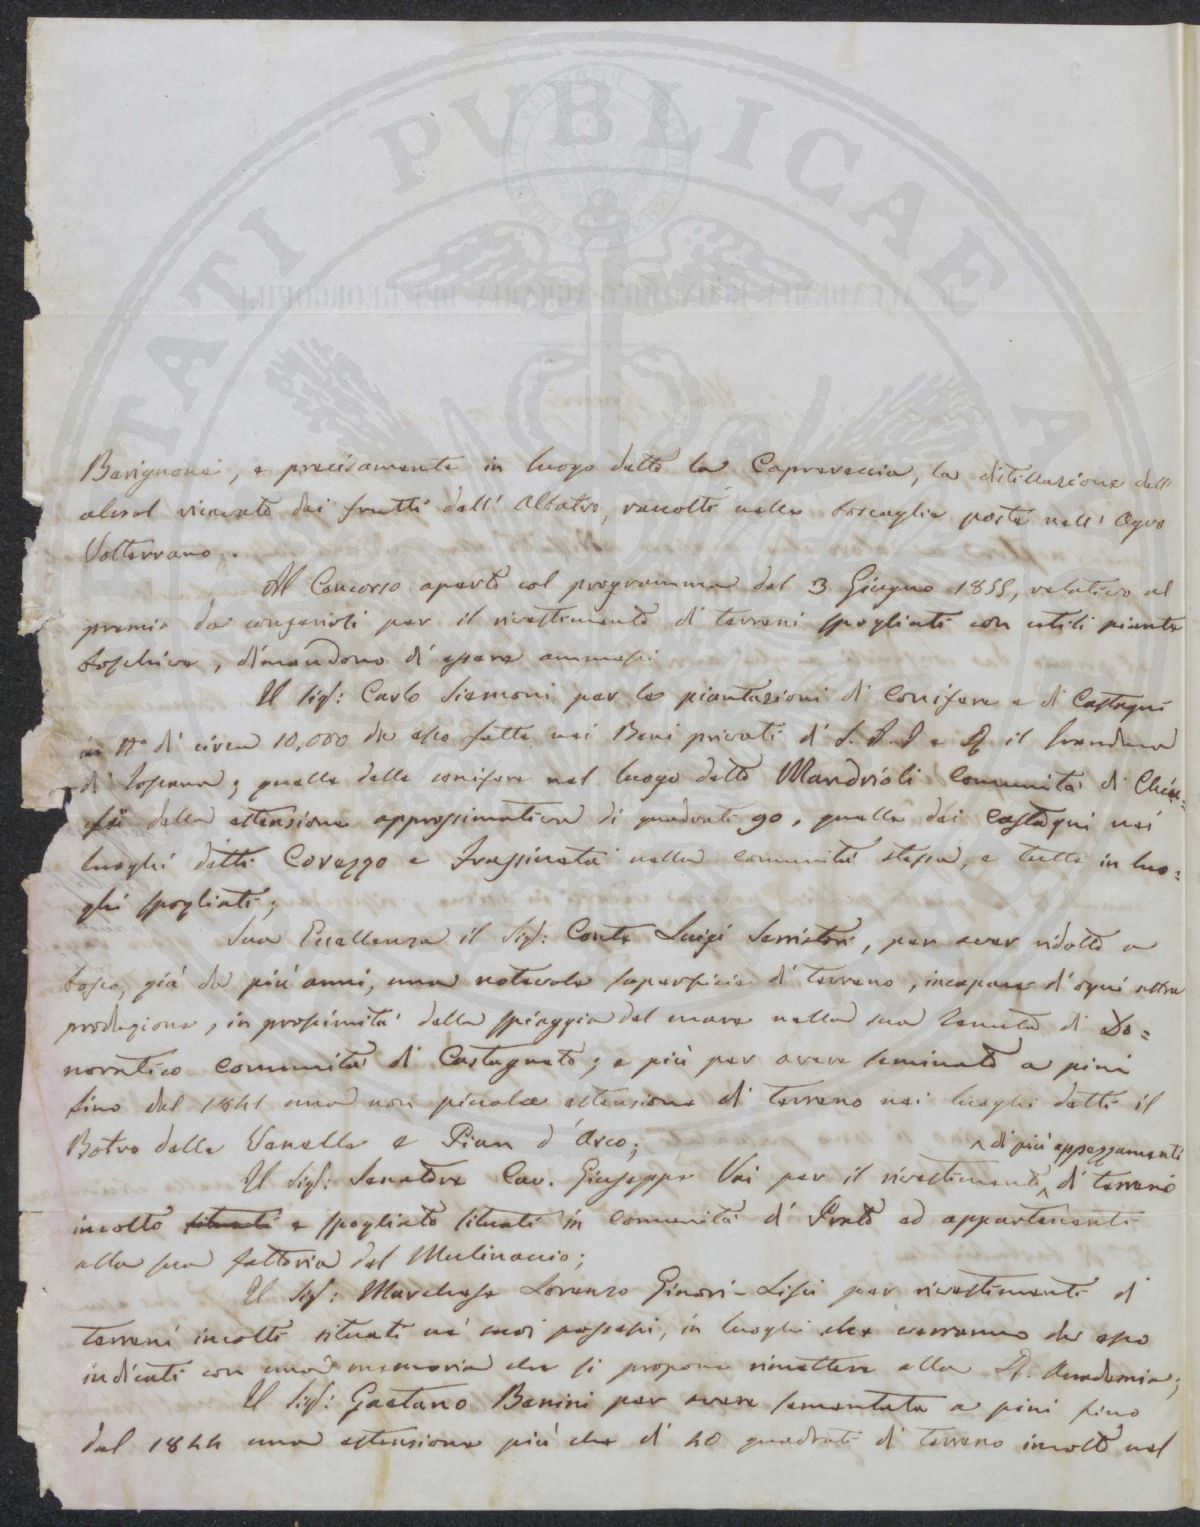 PROSPERITATI PUBLICAE AUGENDAE
R. ACCADEMIA ECONOMICO-AGRARIA DEI GEORGOFILI
Barignano, e precisamente in luogo detto la Capraveccia, la distillazione dell'
alcool ricavato dai frutti dell' Albatro, raccolti nelle boscaglie poste nell' Agro
Volterrano.
Al Concorso aperto col programma del 3 Giugno 1855, relativo al
premio da conferirsi per il rivestimento di terreni spogliati con utili piante
boschive, dimandono di essere ammessi
Il Sigr: Carlo Siemoni per le piantazioni di Conifere e di Castagni
in No di circa 10,000 da esso fatte nei Beni privati di S. A. I. e R. il Granduca
di Toscana; quella delle conifere nel luogo detto Mandrioli Comunità di Chiu=
si della estensione approssimativa di quadrati 90, quella dei Castagni nei
luoghi detti Corezzo e Frassineta nella comunità stessa, e tutte in luo=
ghi spogliati;
Sua Eccellenza il Sigr: Conte Luigi Serristori, per aver ridotto a
bosco, già da più anni, una notevole superficie di terreno, incapace di ogni altra
produzione, in prossimità della spiaggia del mare nella sua Tenuta di Do=
noratico Comunità di Castagneto; e più per avere seminato a pini
fino dal 1841 una non piccola estensione di terreno nei luoghi detti il
Botro delle Venelle e Pian d'Arco;
Il Sigr: Senatore Cav. Giuseppe Vai per il rivestimento ^ di più appezzamenti di terreno
incolto situati e spogliato situati in Comunità di Prato ed appartenenti
alla sua fattoria del Mulinaccio;
Il Sigr: Marchese Lorenzo Ginori-Lisci per rivestimenti di
terreni incolti situati ne' suoi possessi, in luoghi che verranno da esso
indicati con una memoria che si propone rimettere alla R. Accademia;
Il Sigr: Gaetano Benini per avere sementata a pini fino
dal 1844 una estensione più che di 40 quadrati di terreno incolto nel